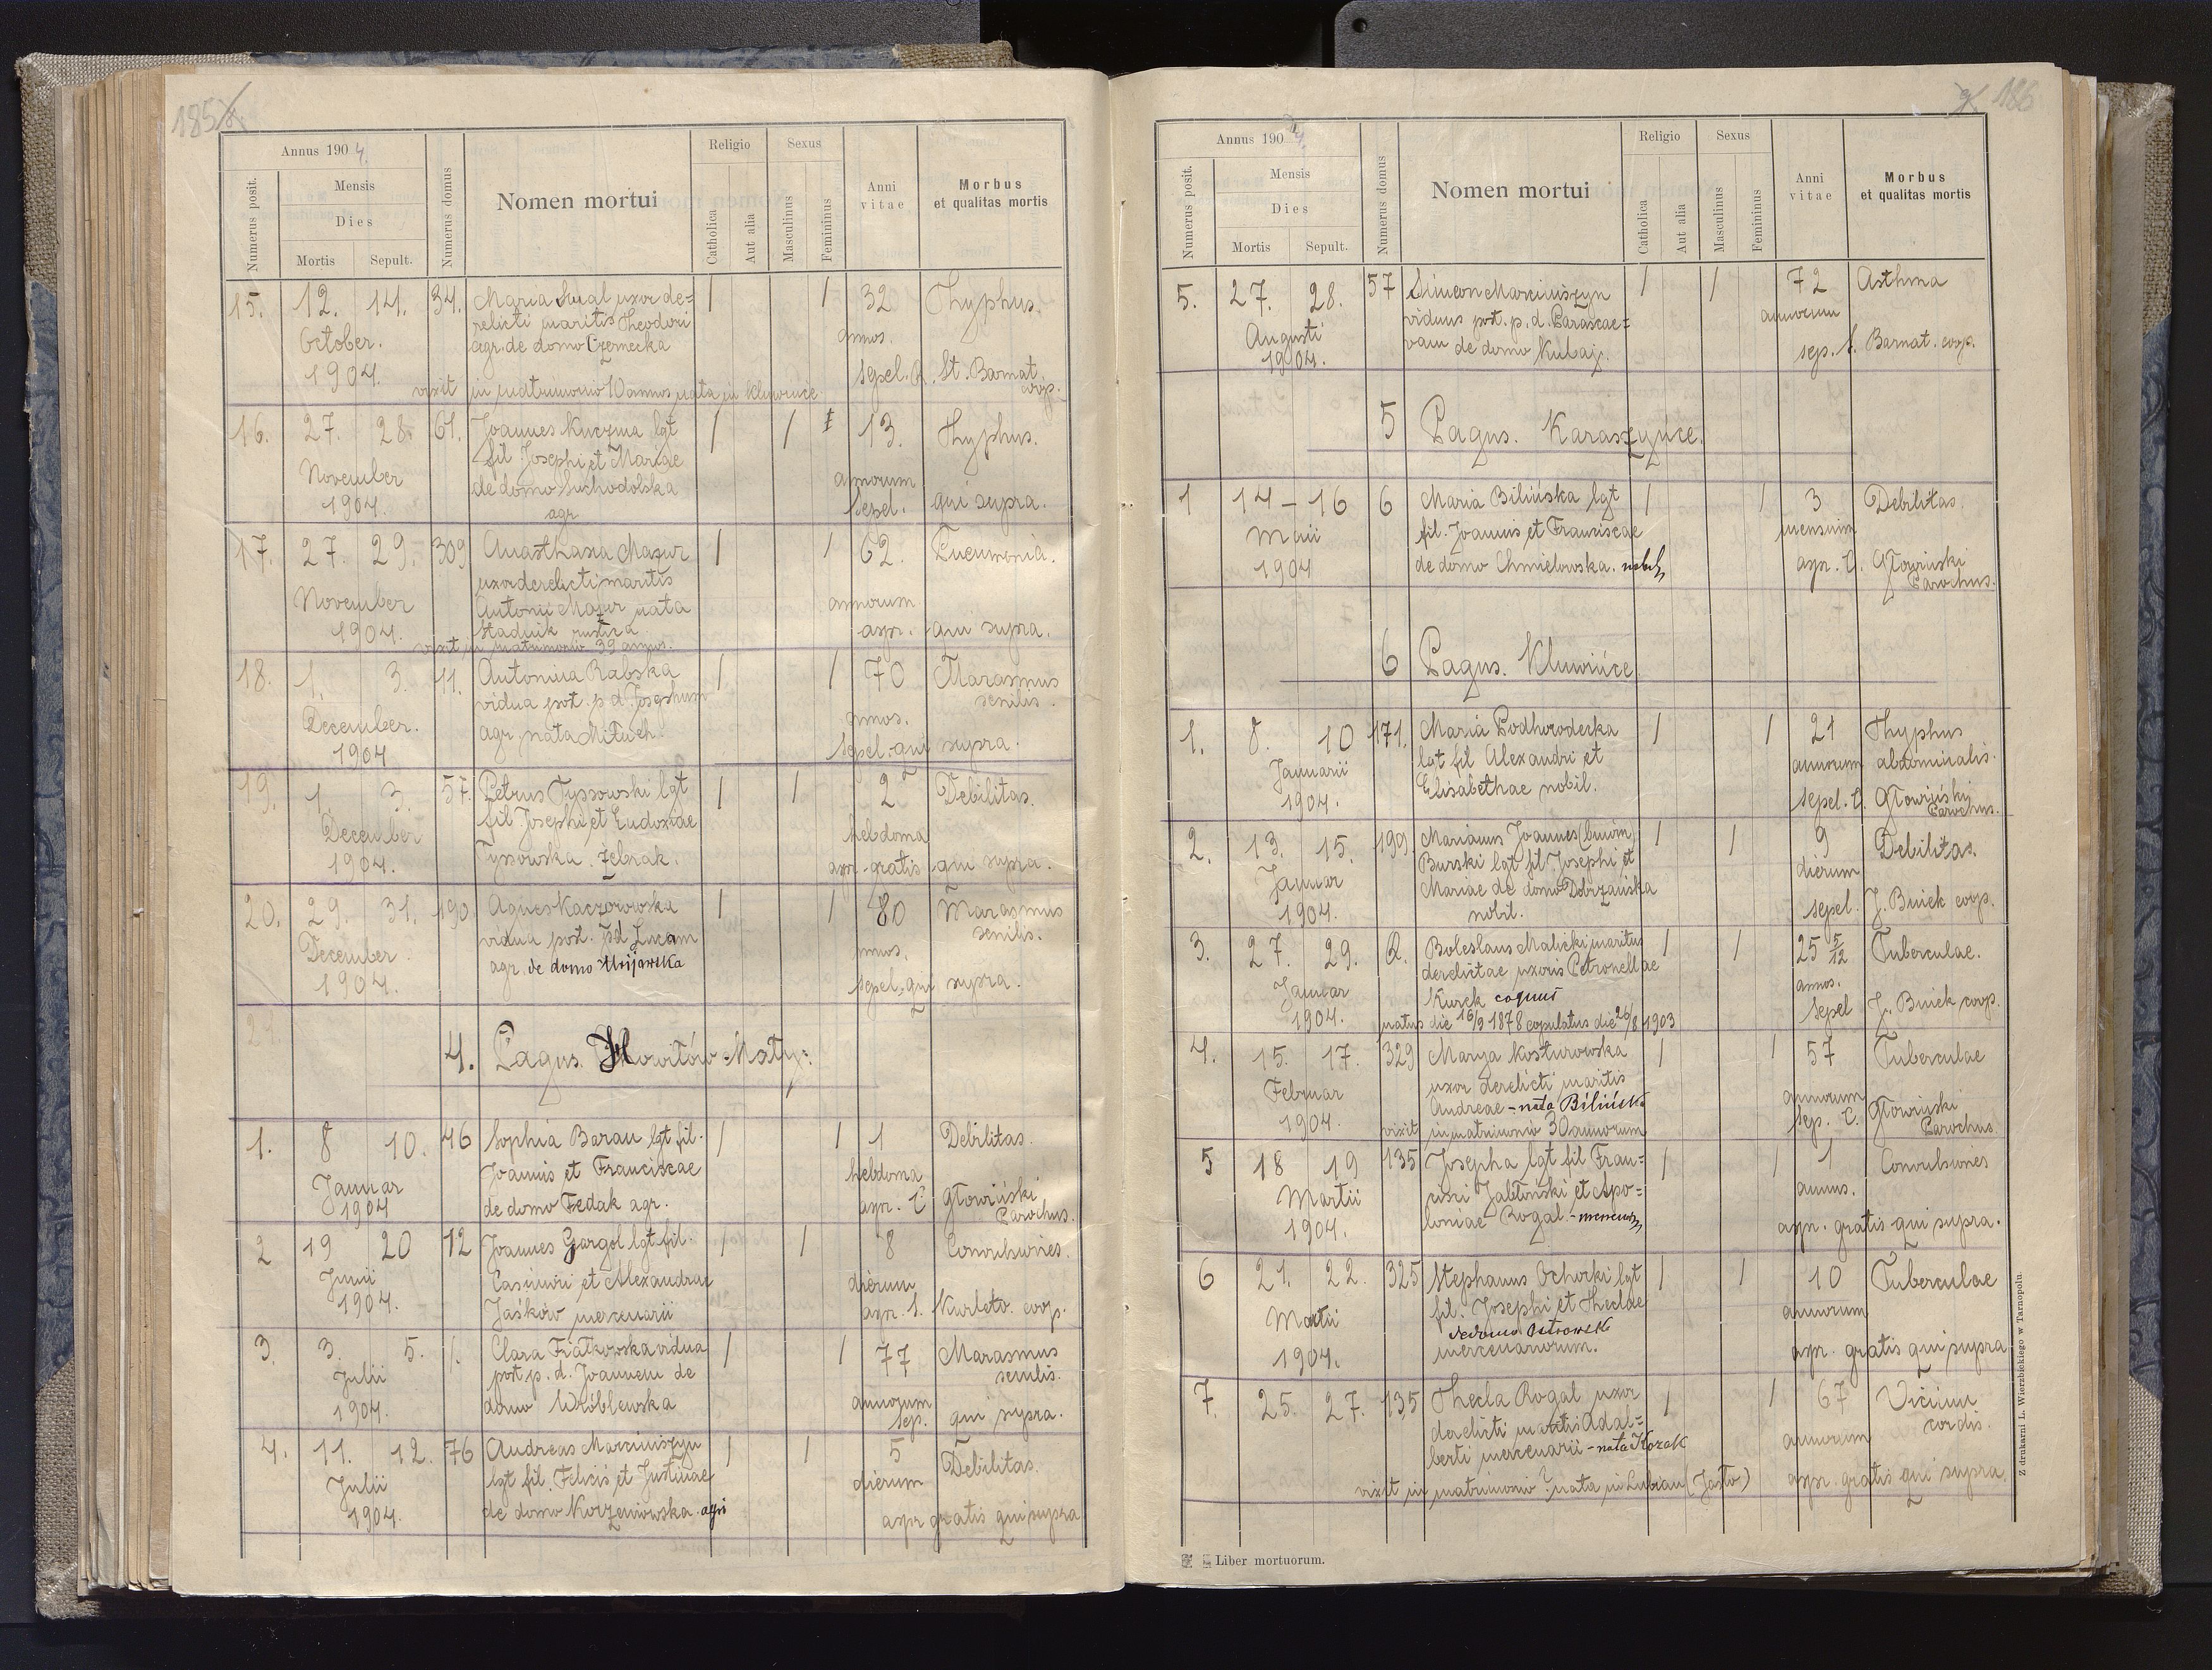 185
Annus 1904.
Numerus posit.
Mensis
Dies
Mortis Sepult.
Numerus domus
Nomen mortui
Religio
Catholica
Aut alia
Sexus
Masculinus
Femininus
Anni vitae
Morbus
et qualitas mortis
15. 12. 14. 34. Maria uxor de= / / 32 Thyphus.
relicti maritis Theodori
October. agr. de domo Czernecka annos.
1904. sepel. St. Barnat.
vixit in matrimonio 10 annos nata in Kluwińce coop.
16. 27. 28. 61. Joannes Kuczma lgt / / 13. Thyphus.
fil Josephi et Mariae
November de domo Suchodolska annorum
1904. agr sepel. qui supra.
17. 27. 29. 309 Anasthasia Mazur / / 62. Pneumonia.
uxor derelicti maritis
November Antonii Mazur nata annorum
1904. Stadnik rustica aspr. qui supra.
vixit in matrimonio 39 annos.
18. 1. 3. 11. Antonina Rabska / / 70 Marasmus
vidua post. p. d. Josephum senilis.
December. agr. nata Mituch annos.
1904 sepel. qui supra.
19. 1. 3. 57. Petrus Tyssowski lgt / / 2 Debilitas.
fil Josephi et Eudoxiae
December Tyssowska. żebrak. hebdoma
1904. aspr. gratis qui supra.
20. 29. 31. 190 Agnes Kaczorowska / / 80 Marasmus
vidua post. pd Lucam senilis.
December agr. de domo annos.
1904. sepel. qui supra.
21.
4. Pagus. Howiłów-Mały:
1. 8 10. 46 Sophia Baran lgt fil. / / 1 Debilitas.
Joannis et Franciscae hebdoma
Januar de domo Fedak agr. aspr. C. Głowiński
1904 Parochus.
2 19 20 12 Joannes Gargol lgt fil. / / 8 Convulsiones.
Junii Casimiri et Alexandrae dierum
1904. Jaśków mercenarii aspr. S. coop.
3. 3. 5. 1. Clara Fiałkowska vidua / / 77 Marasmus
post p. d. Joannem de senilis.
Julii domo Wróblewska annorum
1904. sep. qui supra.
4. 11. 12. 76 Andreas Marciniszyn / / 5 Debilitas.
lgt fil. Felicis et Justinae dierum
Julii de domo Korzeniowska agri
1904. aspr gratis qui supra
186
Annus 1904.
Numerus posit.
Mensis
Dies
Mortis Sepult.
Numerus domus
Nomen mortui
Religio
Catholica
Aut alia
Sexus
Masculinus
Femininus
Anni vitae
Morbus
et qualitas mortis
5. 27. 28. 57 Simeon Marciniszyn / / 72 Asthma
viduus post. p. d. Parascae= annorum
Augusti vam de domo Kubaj. sep. S. Barnat. coop.
1904.
5 Pagus. Karaszyńce.
1 14 - 16 6 Maria Bilińska lgt / / 3 Debilitas.
fil. Joannis et Franciscae mensium
Maii de domo Chmielowska. nobil aspr. C. Głowiński
1904 Parochus.
6 Pagus. Kluwińce
1. 8. 10 171. Maria Podhorodecka / / 21 Thyphus
lgt fil Alexandri et annorum abdominalis.
Januarii Elisabethae nobil. sepel. C. Głowiński
1904. Parochus.
2. 13. 15. 199 Marianus Joannes (binom) / / 9 Debilitas.
Burski lgt fil Josephi et dierum
Januar Mariae de domo Dobrzańska
1904. nobil. sepel. J. Buiek coop.
3. 27. 29. Q. Boleslaus Malicki maritus / / 25 5/12 Tuberculae.
derelictae uxoris Petronellae annos.
Januar Kurek coquus
1904. natus die 16/9 1878 copulatus die 26/8 1903 sepel J. Buiek coop.
4. 15. 17. 329 Marya Kosturowska / / 57 Tuberculae
uxor derelicti maritis annorum
Februar Andreae - nata Bilińska sep. C. Głowiński
1904. vixit in matrimonio 30 annorum Parochus.
5 18 19 135 Josepha lgt fil Fran= / / 1 Convulsiones
cisci Jabłoński et Apo= annus.
Martii loniae Rogal.
1904. aspr. gratis qui supra.
6 21. 22. 325 Stephanus Ochocki lgt / / 10 Tuberculae
fil. Josephi et Theclae annorum
Martii de domo Ostrowsk
1904. mercenariorum. aspr. gratis qui supra
7. 25. 27. 135 Thecla Rogal uxor / / 67 Vicium
derelicti maritis Adal= cordis.
berti mercenarii - nata Kozak annorum
vixit in matrimonio? nata in Lubian (Jasło) aspr. gratis qui supra.
Liber mortuorum.
Z drukarni L. Wierzbickiego w Tarnopolu.